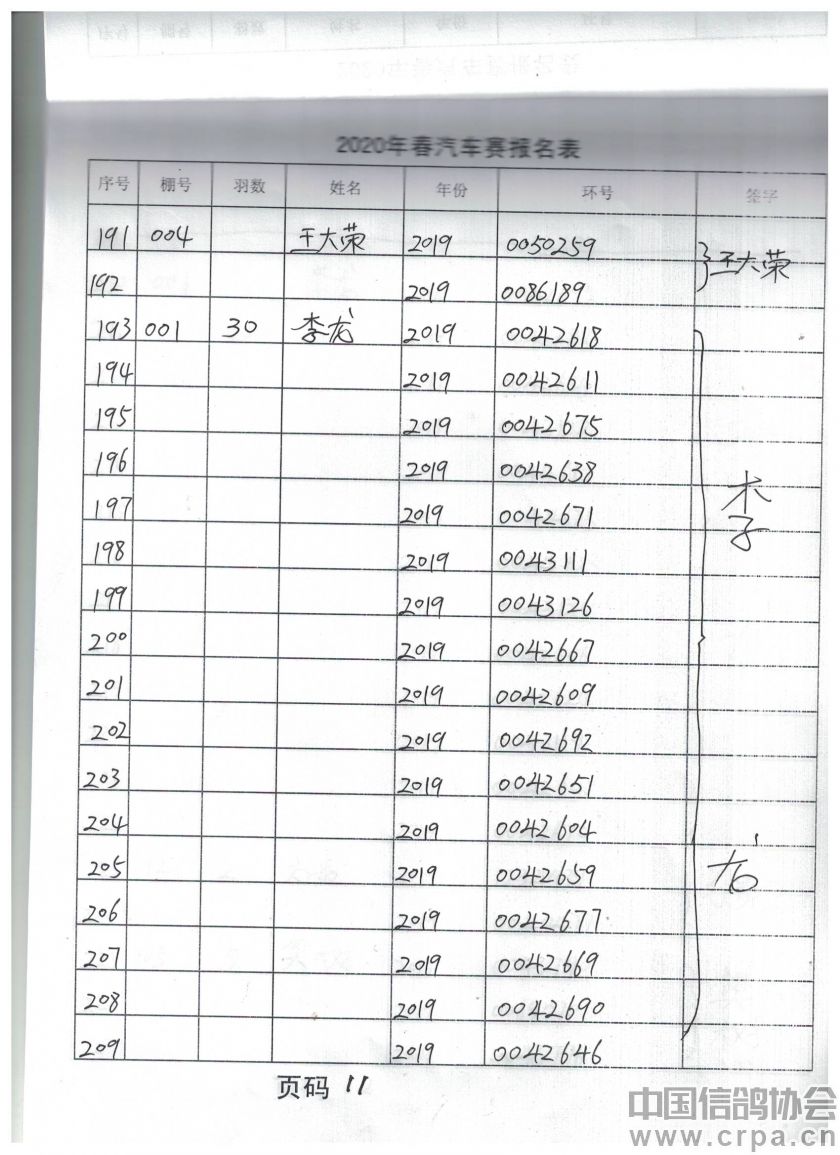 2020年春汽车赛报名表
序号 棚号 羽数 姓名 年份 环号 签字
191 004 王大荣 2019 0050259 王大荣
192 2019 0086189
193 001 30 李龙 2019 0042618
194 2019 0042611
195 2019 0042675
196 2019 0042638
197 2019 0042671
198 2019 0043111
199 2019 0043126
200 2019 0042667
201 2019 0042609
202 2019 0042692
203 2019 0042651
204 2019 0042604
205 2019 0042659
206 2019 0042677
207 2019 0042669
208 2019 0042690
209 2019 0042646
李龙
页码 11
中国信鸽协会
www.crpa.cn